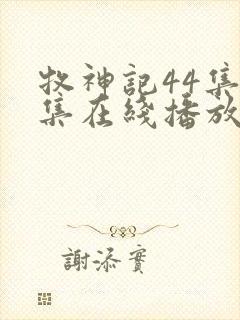 牧神記44集
集在綫播放
謝添實